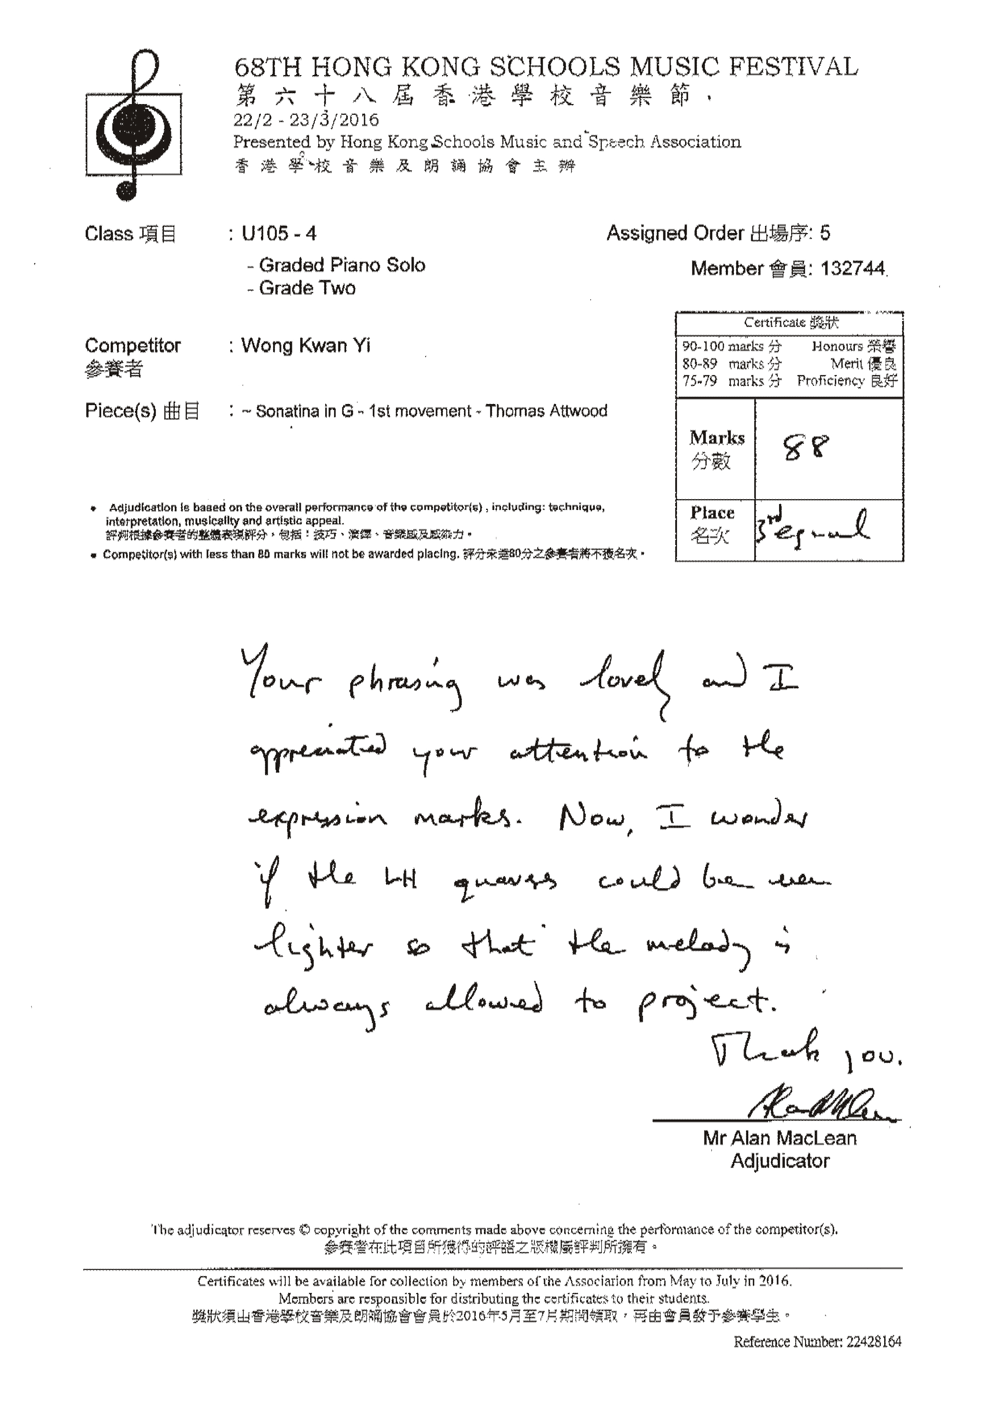 68TH HONG KONG SCHOOLS MUSIC FESTIVAL
第六十八屆香港學校音樂節
22/2 - 23/3/2016
Presented by Hong Kong Schools Music and Speech Association
香港學校音樂及朗誦協會主辦
Class 項目 : U105 - 4
- Graded Piano Solo
- Grade Two
Assigned Order 出場序: 5
Member 會員: 132744
Competitor : Wong Kwan Yi
參賽者
Piece(s) 曲目 : ~ Sonatina in G - 1st movement - Thomas Attwood
Certificate 獎狀
90-100 marks 分 Honours 榮譽
80-89 marks 分 Merit 優良
75-79 marks 分 Proficiency 良好
Marks 88
分數
Place 3rd equal
名次
• Adjudication is based on the overall performance of the competitor(s) , including: technique,
interpretation, musicality and artistic appeal.
評判根據參賽者的整體表現評分，包括：技巧、演繹、音樂感及感染力。
• Competitor(s) with less than 80 marks will not be awarded placing. 評分未達80分之參賽者將不獲名次。
Your phrasing was lovely and I
appreciated your attention to the
expression marks. Now, I wonder
if the LH quavers could be even
lighter so that the melody is
always allowed to project.
Thank you.
Mr Alan MacLean
Adjudicator
The adjudicator reserves © copyright of the comments made above concerning the performance of the competitor(s).
參賽者在此項目所獲得的評語之版權屬評判所擁有。
Certificates will be available for collection by members of the Association from May to July in 2016.
Members are responsible for distributing the certificates to their students.
獎狀須由香港學校音樂及朗誦協會會員於2016年5月至7月期間領取，再由會員發予參賽學生。
Reference Number: 22428164